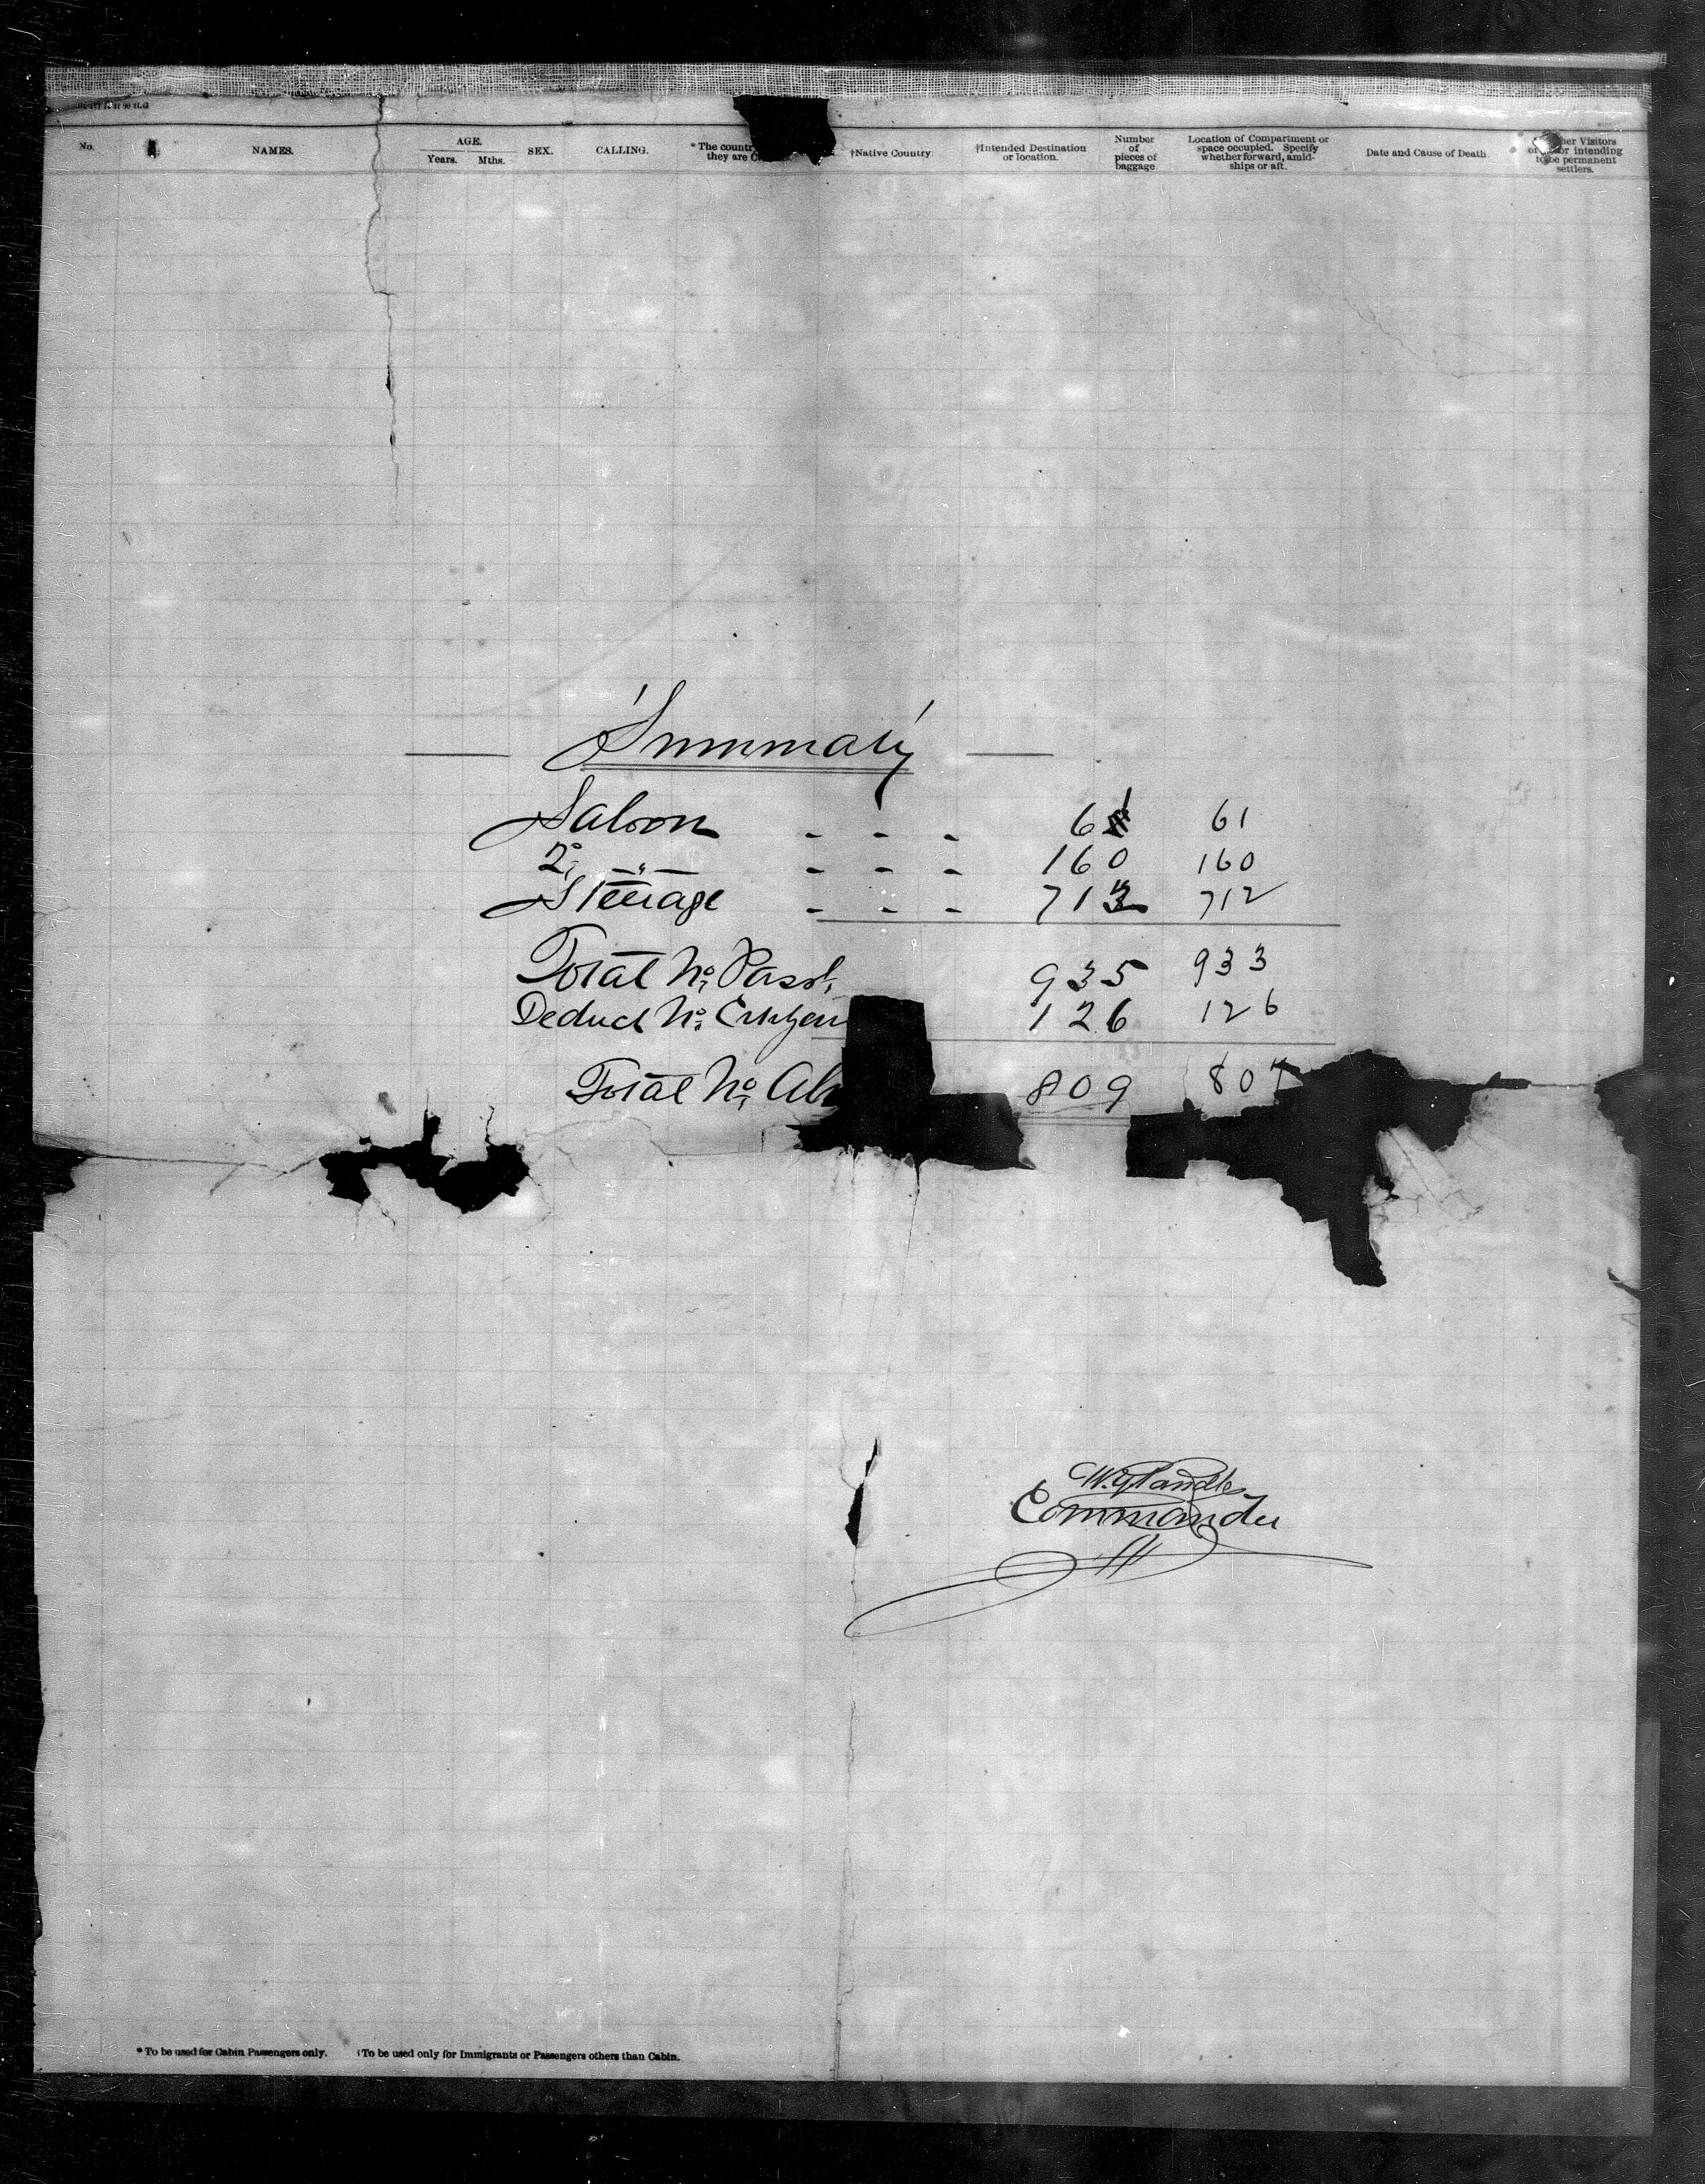 No. NAMES. AGE. Years. Mths. SEX. CALLING. *The country they are †Native Country †Intended Destination or location. Number of pieces of baggage Location of Compartment or space occupied. Specify whether forward, amidships or aft. Date and Cause of Death Visitors intending to be permanent settlers.
Summary
Saloon - - - 61 61
2° -"- - - - 160 160
Steerage - - - 712 712
Total No. Pass. 935 933
Deduct No. Citizen 126 126
Total No. Al 809 807
Commander
*To be used for Cabin Passengers only. †To be used only for Immigrants or Passengers others than Cabin.